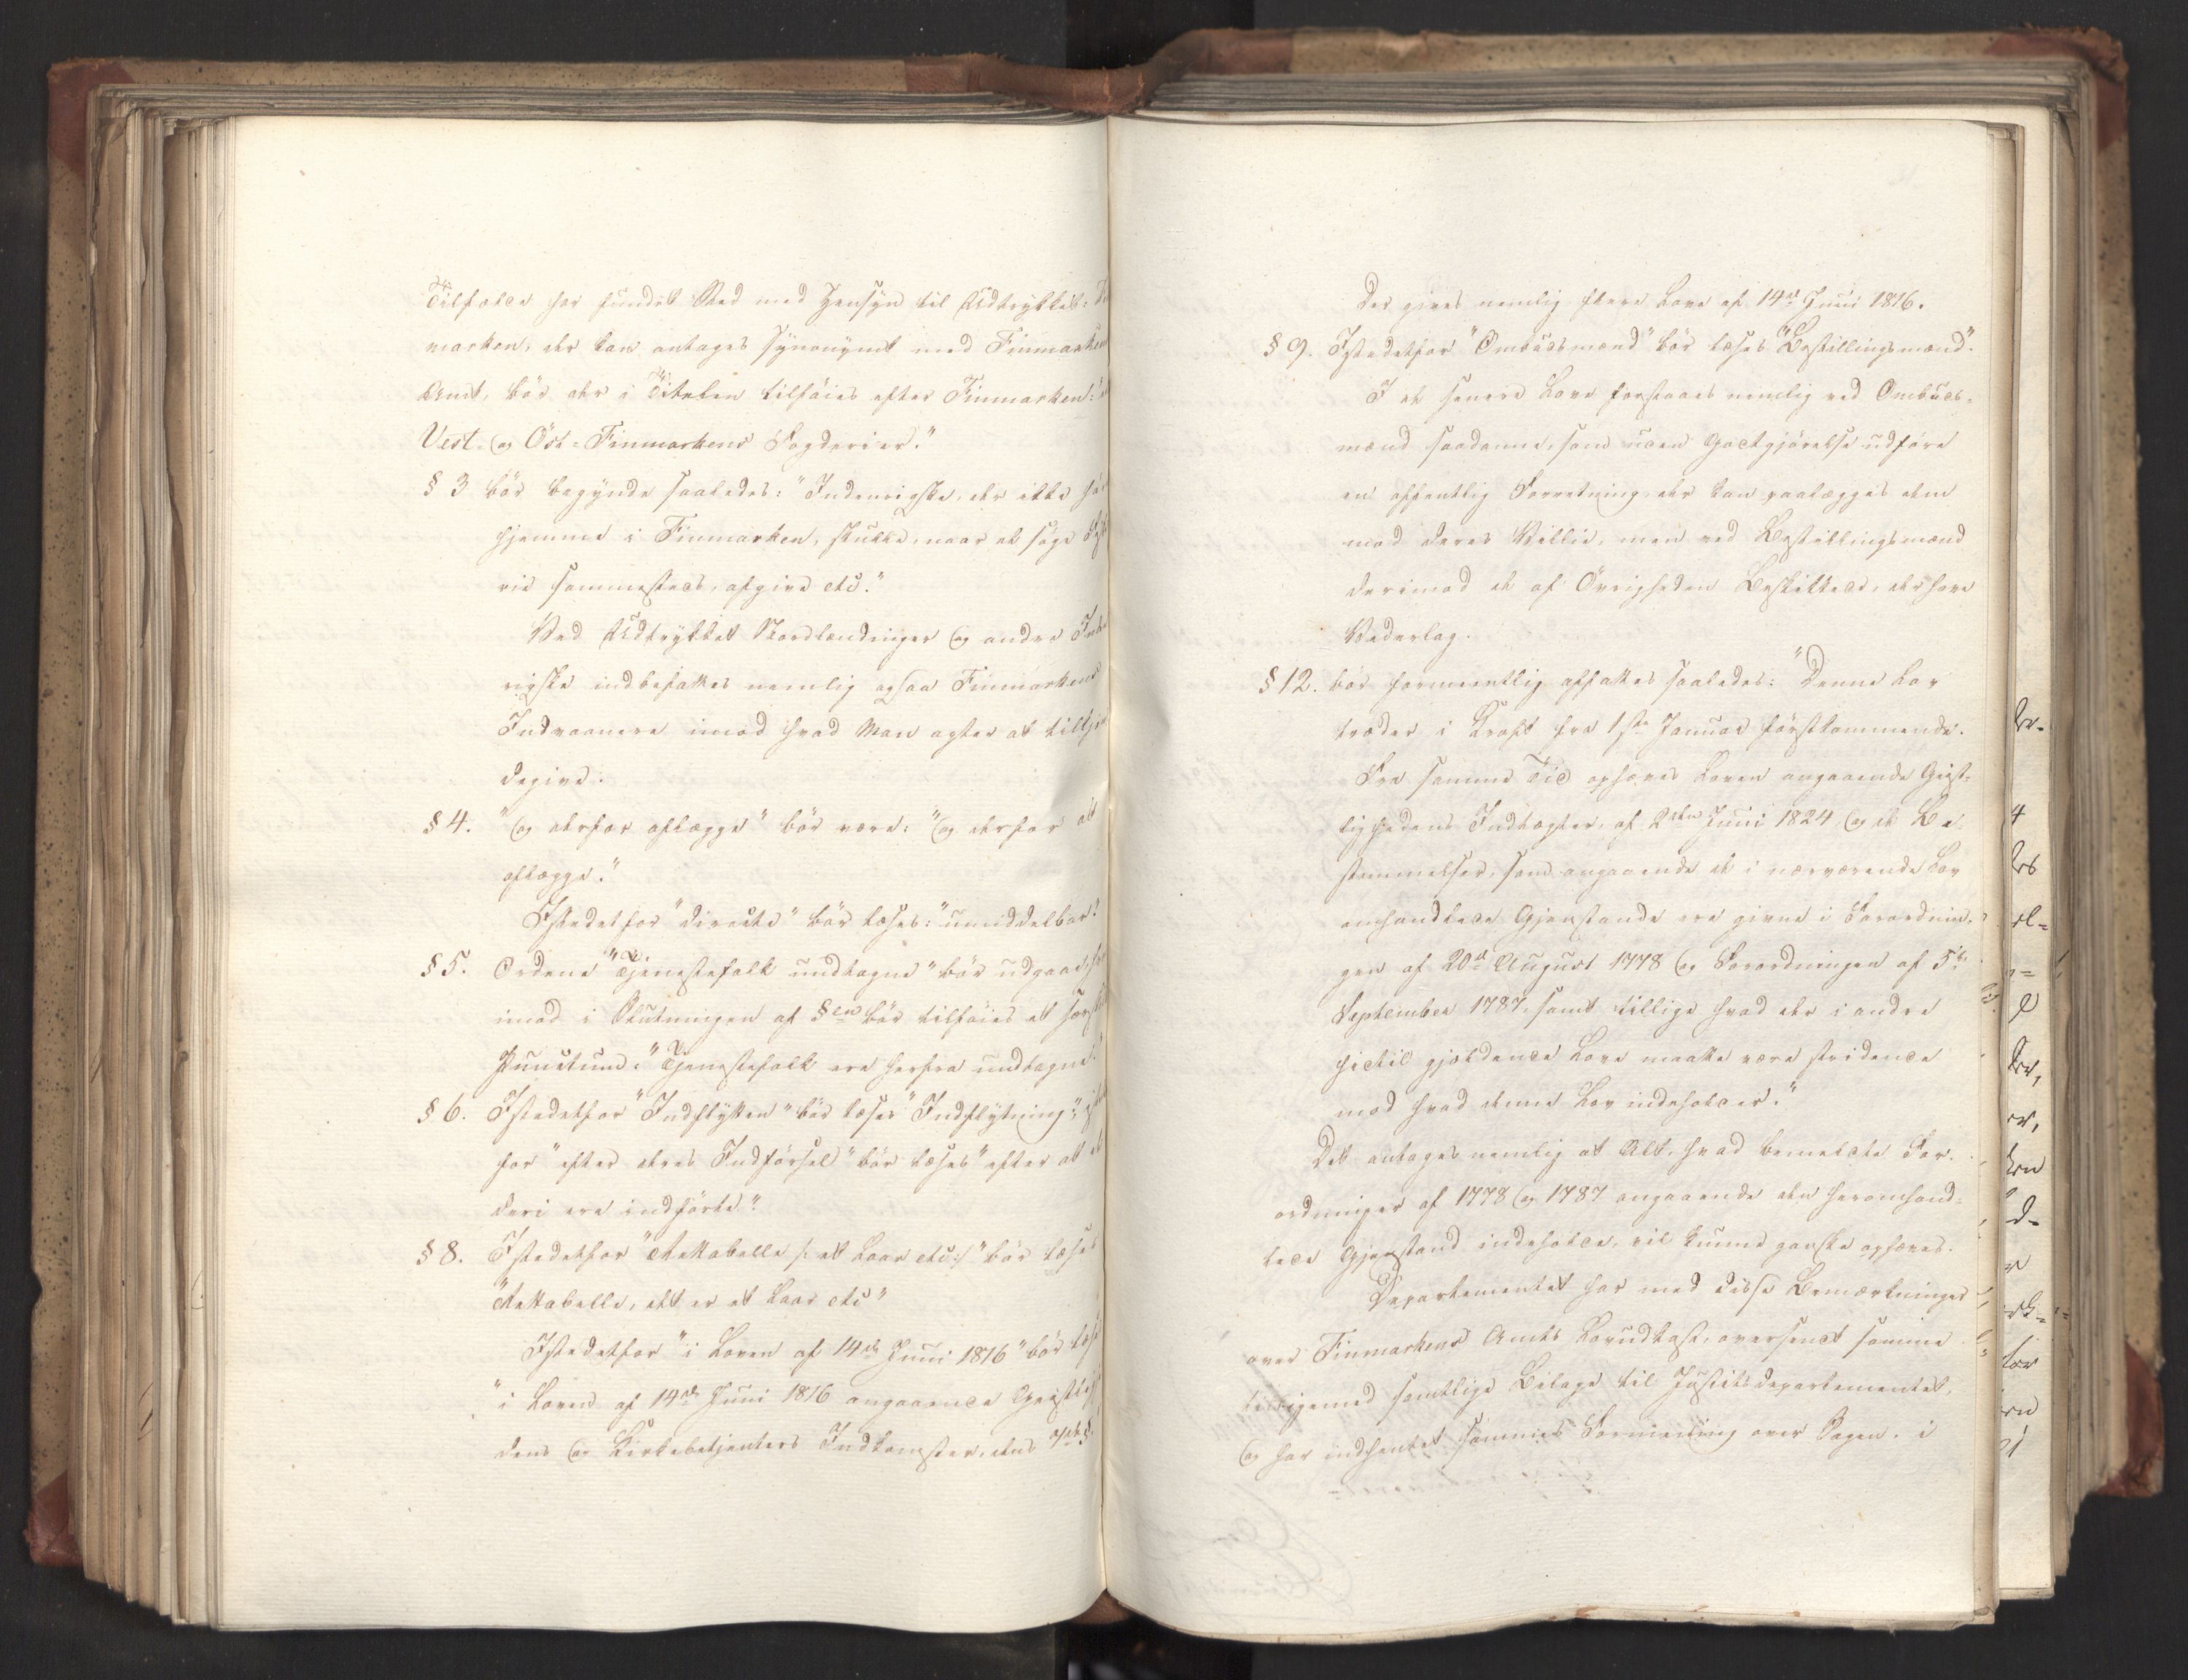 Tilfælde har fundet Sted med Hensyn til Udtrykket:
marken, der kan antages synonymt med Finmarkens
Amt, bör der i Titelen tilföies efter Finmarken:
Vest- og Öst-Finmarkens Fogderier."
§ 3 bör begynde saaledes: "Indenrigske, der ikke
hjemme i Finmarken, skulle, naar de söge
rie sammesteds, afgive etc."
Ved Udtrykket Nordlændinger og andre
rigske indbefattes nemlig ogsaa Finmarkens
Indvaanere imod hvad Man agter at
degive.
§ 4. "og derfor aflægge" bör være: "og derfor at
aflægge."
Istedetfor "directe" bör læses: "umiddelbar"
§ 5. Ordene "Tjenestefolk undtagne" bör udgaae,
imod i Slutningen af §en bör tilföies et
Punctum: "Tjenestefolk ere herfra undtagne."
§ 6. Istedetfor "Indflytten" bör læses "Indflytning",
for "efter deres Indförsel" bör læses "efter at de
deri ere indförte."
§ 8. Istedetfor "Rettabelle /: et Laar etc:/" bör læses
"Rettabelle, det er et Laar etc"
Istedetfor "i Loven af 14de Juni 1816" bör læses
"i Loven af 14de Juni 1816 angaaende
dens og Kirkebetjenters Indkomster, dens 7de §.
Der gives nemlig flere Love af 14de Juni 1816.
§ 9. Istedetfor "Ombudsmænd" bör læses "Bestillingsmænd".
I de senere Love forstaaes nemlig ved Ombuds-
mænd saadanne, som uden Godtgjörelse udföre
en offentlig Forretning, der kan paalægges dem
mod deres Villie, men ved Bestillingsmænd
derimod de af Övrigheden Beskikkede, der have
Vederlag.
§ 12. bör formeentlig affattes saaledes: "Denne Lov
træder i Kraft fra 1ste Januar förstkommende.
Fra samme Tid ophæves Loven angaaende Geist-
lighedens Indtægter, af 2den Juni 1824 og de Be-
stemmelser, som angaaende de i nærværende Lov
omhandlede Gjenstande ere givne i Forordnin-
gen af 20de August 1778 og Forordningen af 5te
September 1787, samt tillige hvad der i andre
hidtil gjældende Love maatte være stridende
mod hvad denne Lov indeholder."
Det antages nemlig at Alt, hvad bemeldte For-
ordninger af 1778 og 1787 angaaende den heromhand-
lede Gjenstand indeholde, vil kunne ganske ophæves.
Departementet har med disse Bemærkninger
over Finmarkens Amts Lovudkast, oversendt samme
tilligemed samtlige Bilage til Justitsdepartementet,
og har indhentet sammes Formening over Sagen. i